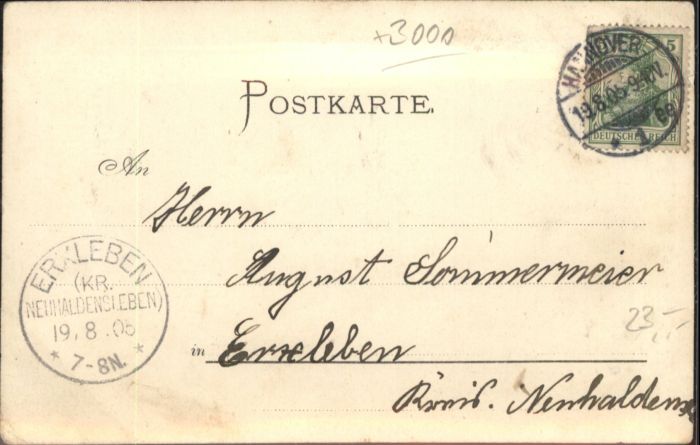 +3000
HANNOVER
19.8.05.
5
DEUTSCHES REICH
POSTKARTE.
An
Herrn
August Sommermeier
in Erxleben
Kreis. Neuhaldens
ERXLEBEN
(KR.
NEUHALDENSLEBEN)
19.8.05
* 7-8N. *
23,-